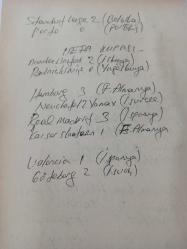 Standart Liege 2 (Belçika)
Porto 0 (Portekiz)
UEFA KUPASI
Dundee United 2 (İskoçya)
Radnicki Niş 0 (Yugoslavya)
Hamburg 3 (F. Almanya)
Neuchatel Xamax 2 (İsviçre)
Real Madrid 3 (İspanya)
Kaiserslautern 1 (F. Almanya)
Valencia 2 (İspanya)
Göteborg 2 (İsveç)